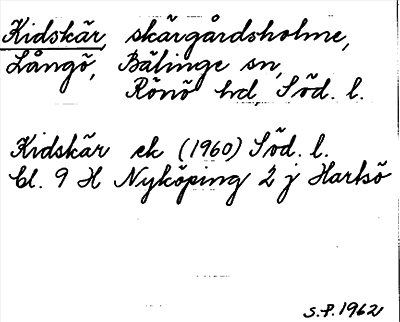 Kidskär, skärgårdsholme,
Långö, Bälinge sn,
Rönö hd, Söd. l.
Kidskär ek (1960) Söd. l.
Bl. 9 H Nyköping 2 j Hartsö
S.P. 1962